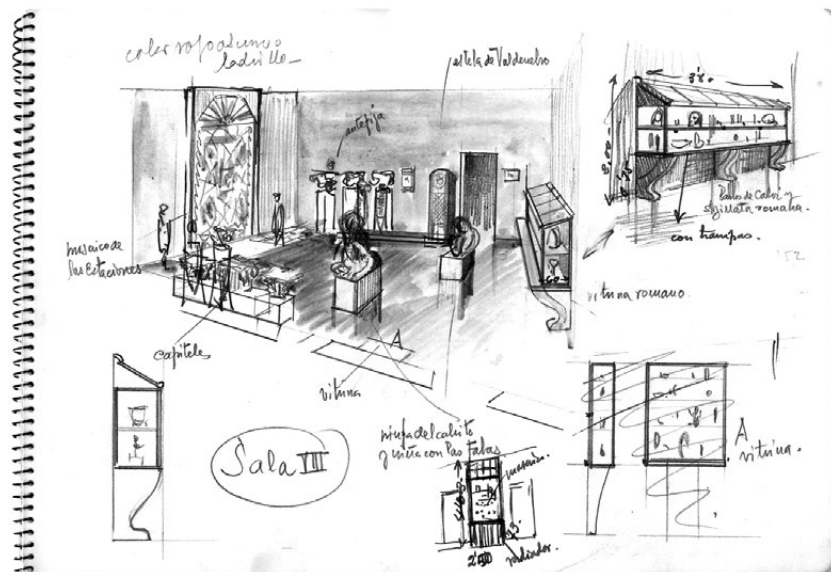 color rosa oscuro
ladrillo
estela de Valdenebro
antefija
3'80.
Barros de Calvi y
sigillata romana.
con trampas.
mosaico de
las Estaciones
vitrina romano.
capiteles
A
vitrina
Sala VIII
ninfa del cabrito
y niña con las tabas
mosaico.
A
vitrina.
250
radiador.